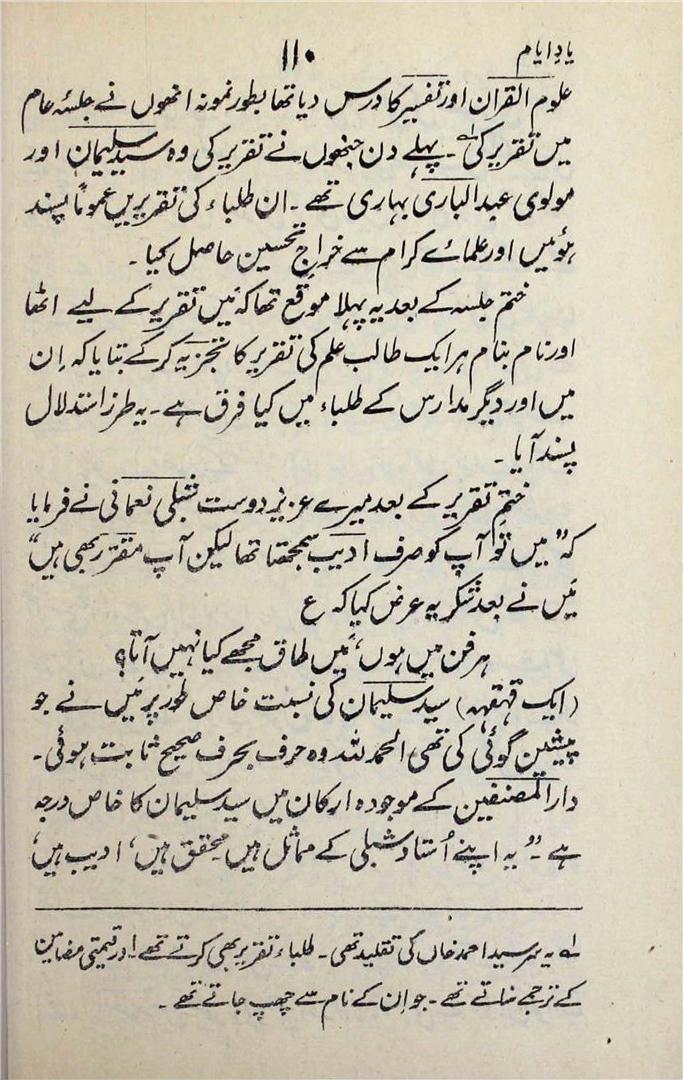 یادِ ایام
۱۱۰
علوم القرآن اور تفسیر کا درس دیا تھا بطور نمونہ انھوں نے جلسۂ عام
میں تقریر کی لہ۔ پہلے دن جنھوں نے تقریر کی وہ سید سلیمان اور
مولوی عبدالباری بہاری تھے۔ ان طلباء کی تقریریں عموماً پسند
ہوئیں اور علمائے کرام سے خراجِ تحسین حاصل کیا۔
ختم جلسہ کے بعد یہ پہلا موقع تھا کہ مَیں تقریر کے لیے اٹھا
اور نام بنام ہر ایک طالب علم کی تقریر کا تجزیہ کر کے بتایا کہ اِن
میں اور دیگر مدارس کے طلباء میں کیا فرق ہے۔ یہ طرز استدلال
پسند آیا۔
ختمِ تقریر کے بعد میرے عزیز دوست شبلی نعمانی نے فرمایا
کہ "میں تو آپ کو صرف ادیب سمجھتا تھا لیکن آپ مقرّر بھی ہیں"
مَیں نے بعد شکریہ عرض کیا کہ ع
ہر فن میں ہوں، مَیں طاق مجھے کیا نہیں آتا؟
(ایک قہقہہ) سید سلیمان کی نسبت خاص طور پر مَیں نے جو
پیشین گوئی کی تھی الحمدللہ وہ حرف بحرف صحیح ثابت ہوئی۔
دارالمصنفین کے موجودہ ارکان میں سید سلیمان کا خاص درجہ
ہے۔ "یہ اپنے اُستاد شبلی کے مماثل ہیں محقق ہیں، ادیب ہیں،
لہ یہ سرسید احمد خاں کی تقلید تھی۔ طلباء تقریر بھی کرتے تھے اور قیمتی مضامین
کے ترجمے سناتے تھے۔ جو اِن کے نام سے چھپ جاتے تھے۔